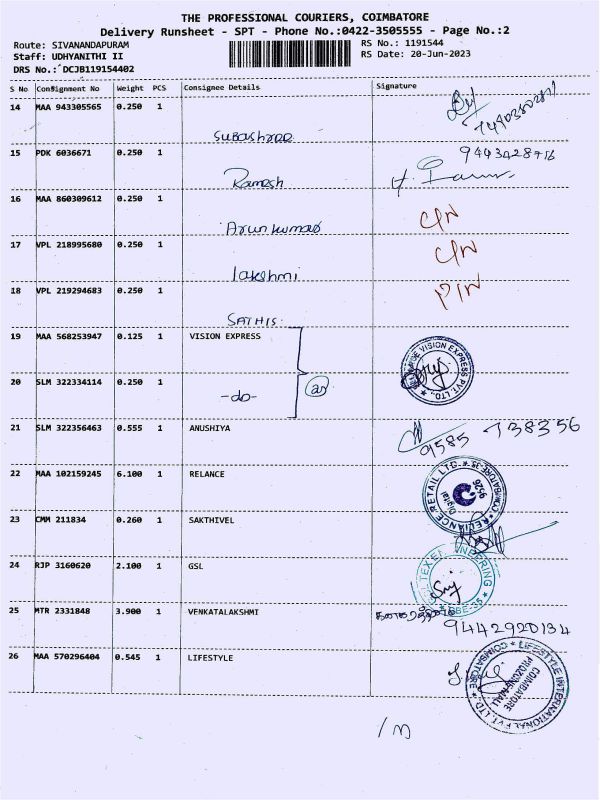 THE PROFESSIONAL COURIERS, COIMBATORE
Delivery Runsheet - SPT - Phone No.:0422-3505555 - Page No.:2
Route: SIVANANDAPURAM
RS No.: 1191544
Staff: UDHYANITHI II
RS Date: 20-Jun-2023
DRS No.: DCJB119154402
S No Consignment No Weight PCS Consignee Details Signature
14 MAA 943305565 0.250 1
Subashree
15 PDK 6036671 0.250 1
9443428716
Ramesh
16 MAA 860309612 0.250 1
C/N
Arunkumar
17 VPL 218995680 0.250 1
C/N
lakshmi
18 VPL 219294683 0.250 1
P/N
SATHIS.
19 MAA 568253947 0.125 1 VISION EXPRESS
VISION EXPRESS PVT. LTD.
20 SLM 322334114 0.250 1
-do-
21 SLM 322356463 0.555 1 ANUSHIYA
9585 738356
22 MAA 102159245 6.100 1 RELANCE
RELIANCE RETAIL LTD. * COIMBATORE-35 *
Digital
9526
23 CMM 211834 0.260 1 SAKTHIVEL
24 RJP 3160620 2.100 1 GSL
25 MTR 2331848 3.900 1 VENKATALAKSHMI
9442920134
26 MAA 570296404 0.545 1 LIFESTYLE
* LIFESTYLE INTERNATIONAL PVT. LTD. * COIMBATORE
COIMBATORE
PROZONE MALL